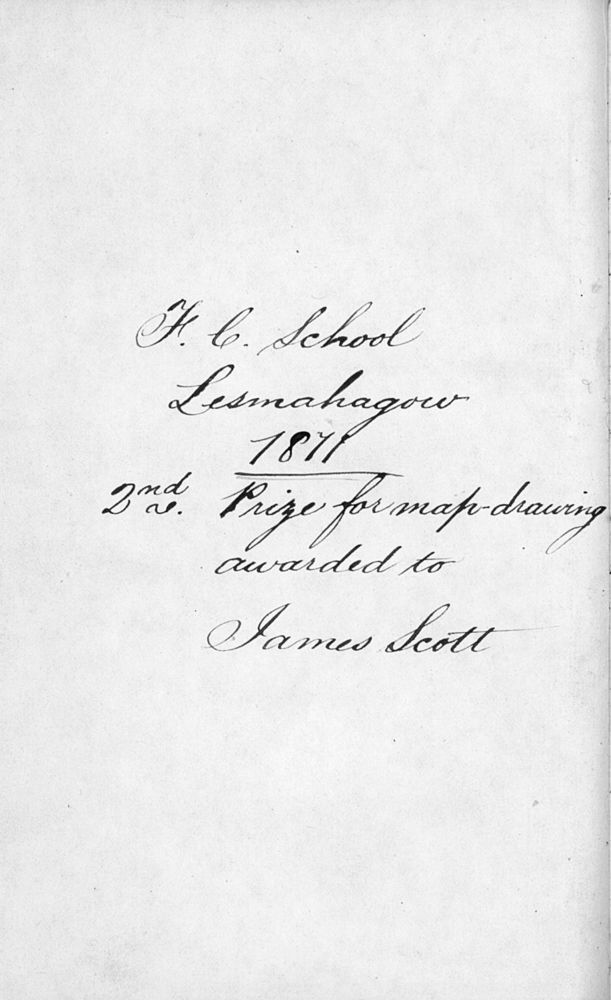 F. C. School
Lesmahagow
1871
2nd. Prize for map-drawing
awarded to
James Scott